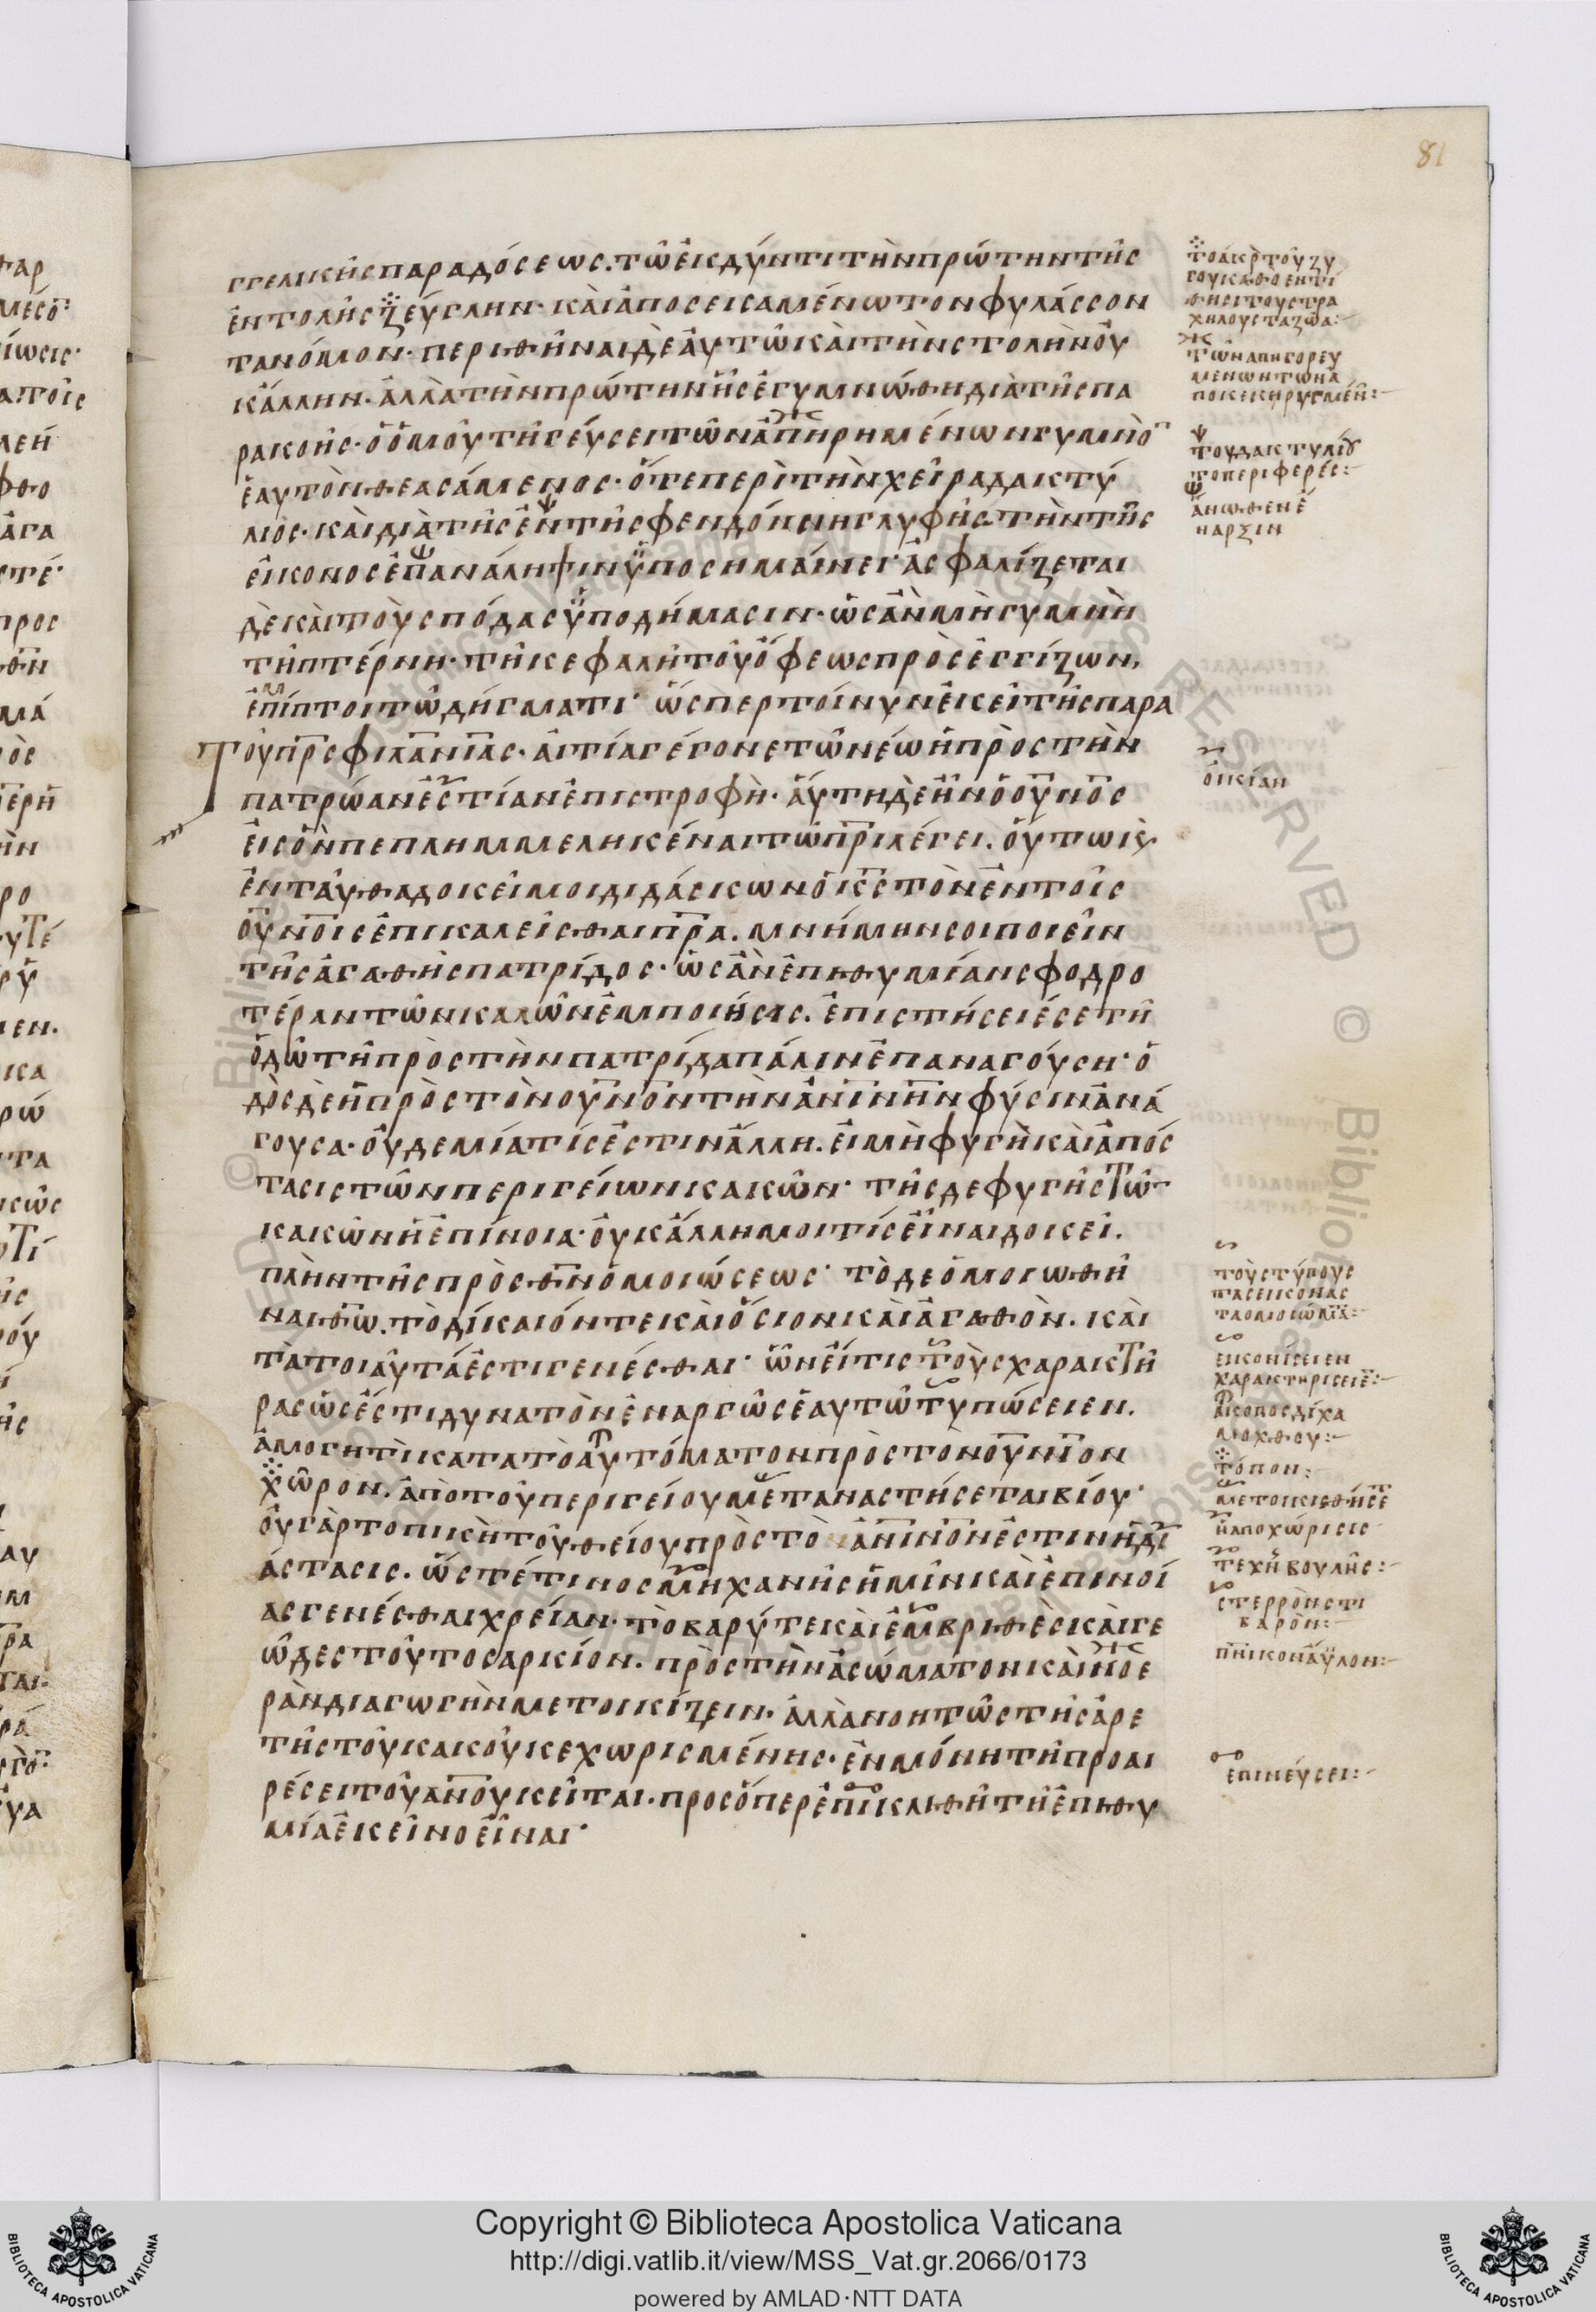 81
γγελικῆς παραδόσεως. τῶ εἰσδύντι τὴν πρώτην τῆς
ἐντολῆς ζεύγλην· καὶ ἀποσεισαμένω τον φυλάσσον
τα νόμον· περιθῆναι δὲ ἀυτῶ καὶ τὴν στολὴν οὐ
κ ἄλλην· ἀλλὰ τὴν πρώτην ἧς ἐγυμνώθη διὰ τῆς πα
ρακοῆς· ὁ ὁμοῦ τῆ γεύσει τῶν ἀπηρημένων γυμνὸ
ἑαυτὸν θεασάμενος· ὅτε περὶ τὴν χεῖρα δακτύ
λιος· καὶ διὰ τῆς ἐν τῆ σφενδόνη γλυφῆς τὴν τῆς
εἰκονος ἐπανάληψιν ὑποσημαίνει· ἀσφαλίζεται
δὲ καὶ τοὺς πόδας ὑποδήμασιν· ὡς ἂν μὴ γυμνῆ
τῆ πτέρνη· τῆ κεφαλῆ τοῦ ὄφεως προσεγγίζων,
ἐμπίπτοι τῶ δήγματι· ὥσπερ τοίνυν ἐκεῖ τῆς παρα
τοῦ πρς φιλανιας· ἀιτία γέγονε τῶ νέω ἡ πρὸς τὴν
πατρώαν ἑστίαν ἐπιστροφὴ· ἅυτη δὲ ἦν ὁ ουνος
εἰς ὃν πεπλημμεληκέναι τῶ πρι λέγει. ὅυτω κς
ἐνταῦθα δοκεῖ μοι διδάσκων ὁ κς τὸν ἐν τοῖς
ουνοις ἐπικαλεῖσθαι πρα. μνήμην σοι ποιεῖν
τῆς ἀγαθῆς πατρίδος· ὡς ἂν ἐπιθυμίαν σφοδρο
τέραν τῶν καλῶν ἐμποιήσας. ἐπιστήσειέ σε τῆ
ὁδῶ τῆ πρὸς τὴν πατρίδα πάλιν ἐπαναγούση· ὁ
δὸς δε ἡ πρὸς τὸν ουνον τὴν ἀνινην φύσιν ἀνά
γουσα· οὐδεμία τίς ἐστιν ἄλλη. εἰ μὴ φυγὴ καὶ ἀπόσ
τασις τῶν περιγείων κακῶν· τῆς δε φυγῆς τῶ
κακῶν ἡ ἐπίνοια· οὐκ ἄλλη μοι τίς εἶναι δοκεῖ.
πλὴν τῆς πρὸς θν ὁμοιώσεως· τὸ δε ὁμοιωθῆ
ναι θω. τὸ δίκαιόν τε καὶ ὅσιον καὶ ἀγαθὸν. καὶ
τὰ τοιαῦτά ἐστι γενέσθαι· ὧν εἴ τις τοὺς χαρακτῆ
ρας ὡς ἔστι δυνατὸν ἐναργῶς ἑαυτῶ τυπώσειεν.
ἀμογητὶ κατα τὸ αὐτόματον πρὸς τὸν ουνιον
χῶρον. ἀπὸ τοῦ περιγείου μεταναστήσεται βίου·
οὐ γὰρ τοπικὴ τοῦ θείου πρὸς τὸ ἀνινον ἐστιν ἡ δι
άστασις. ὥστέ τινος μηχανῆς ἡμῖν καὶ ἐπινοί
ας γενέσθαι χρείαν· τὸ βαρύ τε καὶ ἐμβριθὲς καὶ γε
ῶδες τοῦτο σαρκίον. πρὸς τὴν ἀσώματον καὶ νοε
ρὰν διαγωγὴν μετοικίζειν. ἀλλὰ νοητῶς τῆς ἀρε
τῆς τοῦ κακοῦ κεχωρισμένης· ἐν μόνη τῆ προαι
ρέσει τοῦ ανου κεῖται. προς ὅπερ ἐπικλιθῆ τῆ ἐπιθυ
μία ἐκεῖνο εἶναι·
τὸ ἄκρὸ τοῦ ζυ
γου καθὸ ἐντί
θησι τους τρα
χηλους τα ζῶα:
τῶν απηγορευ
μενων των ἀ
ποκεκηρυγμέν:
του δακτυλίου
το περιφερές:
ἄνωθεν ἔ
ναρξιν
ὀικίαν
τοὺς τύπους
τας εικονας
τα ομοιώματα:
εικονίσειεν
χαρακτηρισειε:
ακοπος δίχα
μοχθου:
τόπον:
μετοικισθήσετ
ἡ αποχώρισις
τεχν βουλῆς:
στερρὸν στι
βαρὸν:
πνικον ἄυλον:
ἐπινεύσει:
Copyright © Biblioteca Apostolica Vaticana
http://digi.vatlib.it/view/MSS_Vat.gr.2066/0173
powered by AMLAD·NTT DATA
BIBLIOTECA APOSTOLICA VATICANA
BIBLIOTECA APOSTOLICA VATICANA